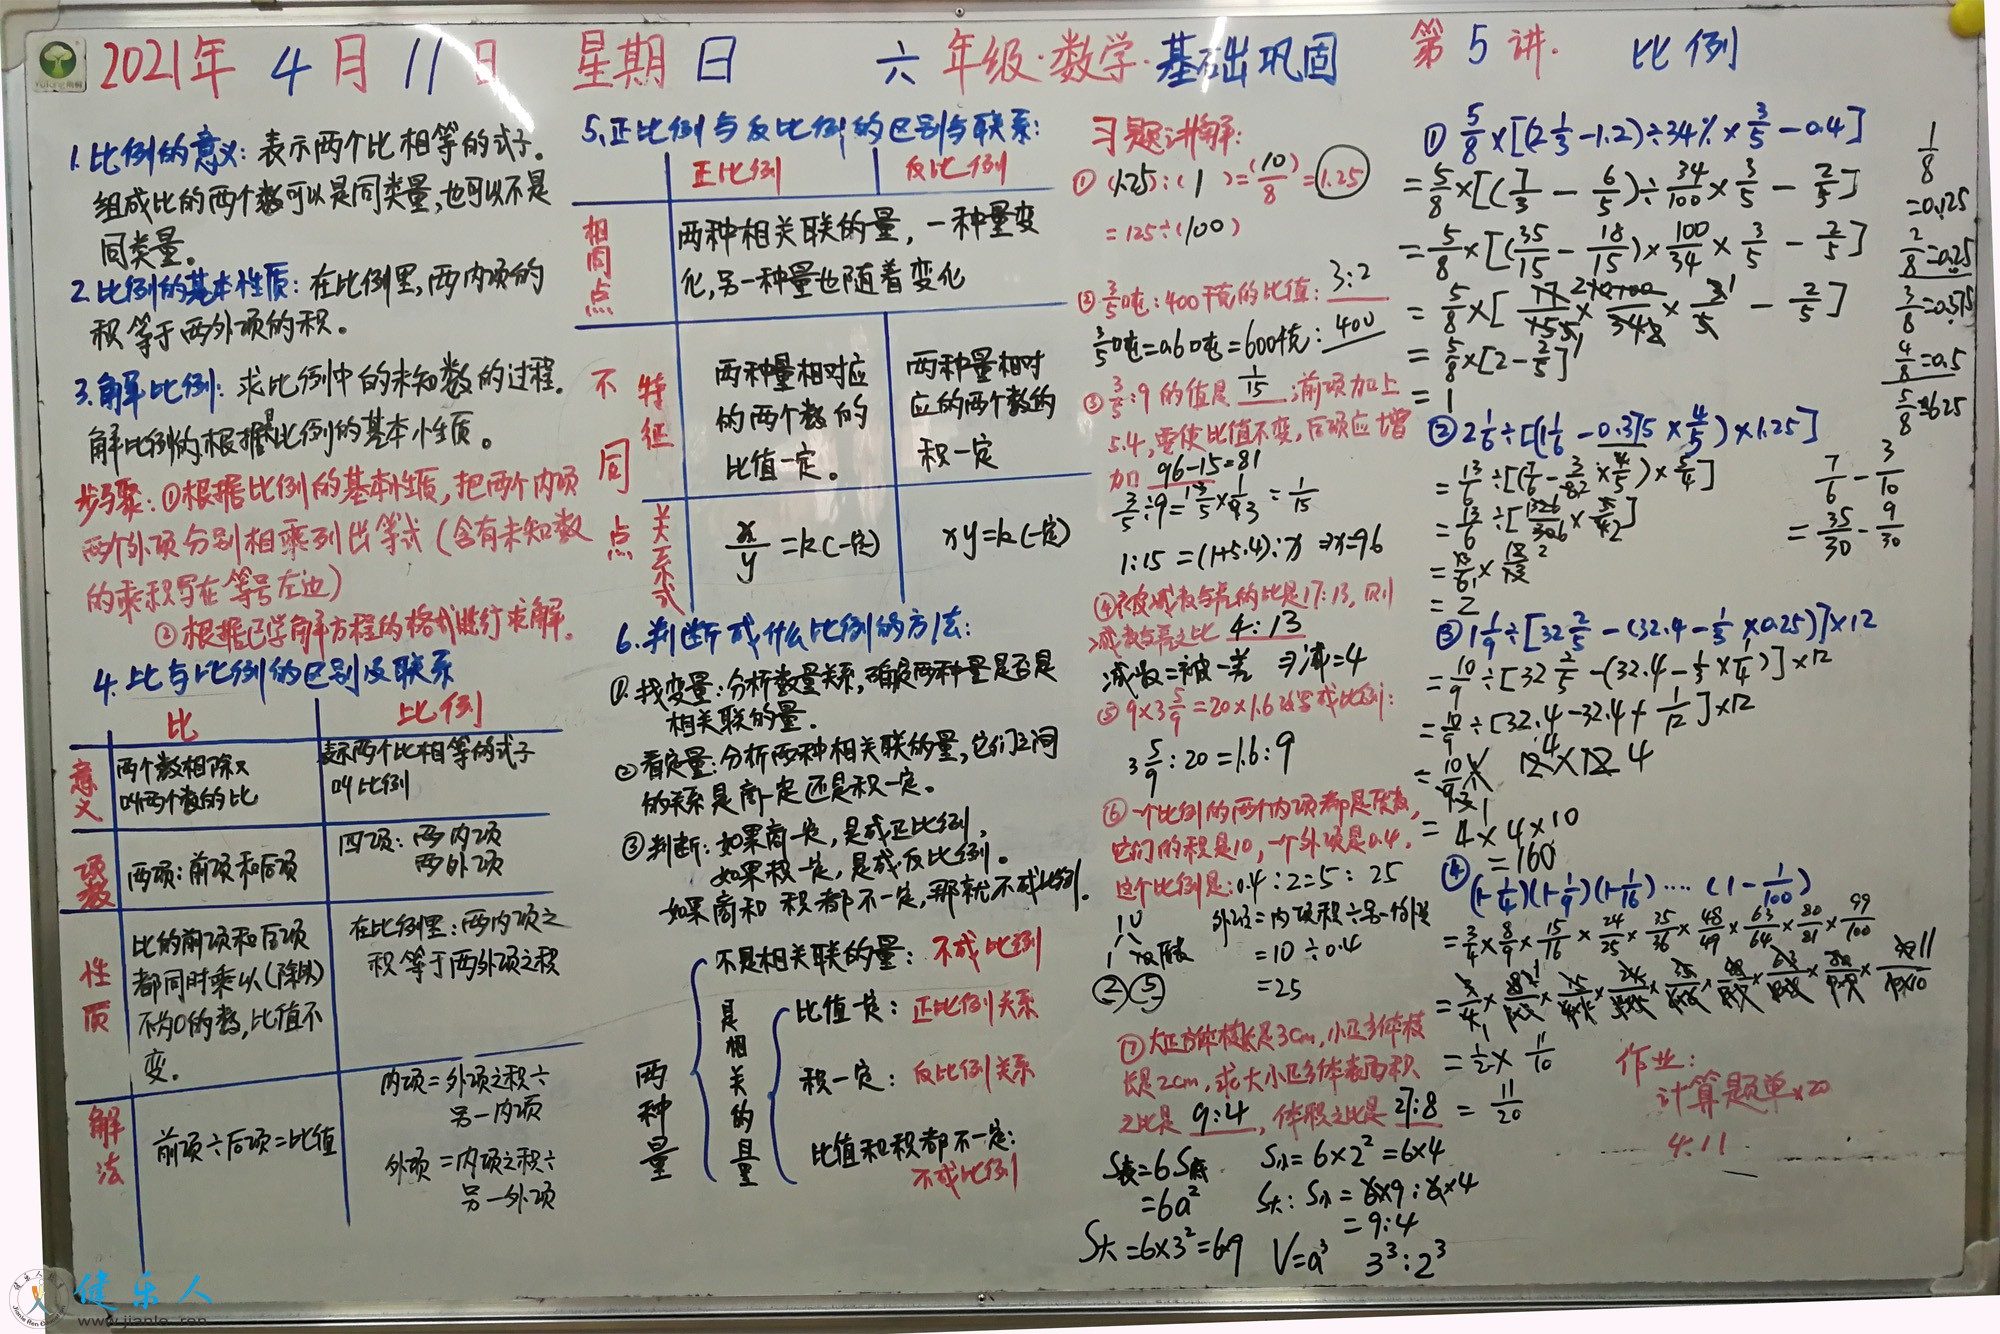 2021年 4月11日 星期日 六年级·数学·基础巩固 第5讲. 比例
1.比例的意义:表示两个比相等的式子。
组成比的两个数可以是同类量,也可以不是
同类量。
2.比例的基本性质:在比例里,两内项的
积等于两外项的积。
3.解比例:求比例中的未知数的过程.
解比例的根据是比例的基本性质。
步骤:①根据比例的基本性质,把两个内项
两个外项分别相乘列出等式(含有未知数
的乘积写在等号左边)
②根据已学解方程的格式进行求解.
4.比与比例的区别及联系
比 比例
意义 两个数相除又
叫两个数的比
表示两个比相等的式子
叫比例
项数 两项:前项和后项
四项:两内项
两外项
性质 比的前项和后项
都同时乘以(除以)
不为0的数,比值不
变。
在比例里:两内项之
积等于两外项之积
解法 前项÷后项=比值
内项=外项之积÷
另一内项
外项=内项之积÷
另一外项
5.正比例与反比例的区别与联系:
正比例 反比例
相同点 两种相关联的量,一种量变
化,另一种量也随着变化
不同点
特征 两种量相对应
的两个数的
比值一定。
两种量相对
应的两个数的
积一定
关系式 x/y=k(一定) xy=k(一定)
6.判断成什么比例的方法:
①.找变量:分析数量关系,确定两种量是否是
相关联的量.
②看定量:分析两种相关联的量,它们之间
的关系是商一定还是积一定。
③判断:如果商一定,是成正比例,
如果积一定,是成反比例。
如果商和积都不一定,那就不成比例.
两种量
不是相关联的量:不成比例
是相关的量
比值一定:正比例关系
积一定:反比例关系
比值和积都不一定:
不成比例
习题讲解:
①(1.25):(1)=(10)/8=1.25
=125÷(100)
②3/5吨:400千克的比值:3:2
3/5吨=0.6吨=600千克:400
③3/5:9的值是1/15;前项加上
5.4,要使比值不变,后项应增
加 96-15=81
3/5÷9=3/5×1/9=1/15
1:15=(1+5.4):x ⇒x=96
④被减数与差的比是17:13,则
减数与差之比 4:13
减数=被-差 ⇒减=4
⑤9×3 5/9=20×1.6改写成比例:
3 5/9:20=1.6:9
⑥一个比例的两个内项都是质数,
它们的积是10,一个外项是0.4.
这个比例是:0.4:2=5:25
10
1
②⑤
外项=内项积÷另一外项
=10÷0.4
=25
⑦大正方体棱长是3cm,小正方体棱
长是2cm,求大小正方体表面积
之比是 9:4,体积之比是 27:8
S表=6S底
=6a²
S大=6×3²=6×9
S小=6×2²=6×4
S大:S小=6×9:6×4
=9:4
V=a³ 3³:2³
①5/8×[(2 1/3-1.2)÷34%×3/5-0.4]
=5/8×[(7/3-6/5)÷34/100×3/5-2/5]
=5/8×[(35/15-18/15)×100/34×3/5-2/5]
=5/8×[17/15×100/34×3/5-2/5]
=5/8×[2-2/5]
=1
1/8
=0.125
2/8=0.25
3/8=0.375
4/8=0.5
5/8=0.625
②2 1/6÷[(1 1/6-0.375×4/5)×1.25]
=13/6÷[(7/6-3/8×4/5)×5/4]
=13/6÷[26/30×5/4]
=13/6×12/13
=2
7/6-3/10
=35/30-9/30
③1 1/9÷[32 2/5-(32.4-1/3×0.25)]×12
=10/9÷[32 2/5-(32.4-1/3×1/4)]×12
=10/9÷[32.4-32.4+1/12]×12
=10/9×12×12
=4×4×10
=160
④(1-1/4)(1-1/9)(1-1/16)····(1-1/100)
=3/4×8/9×15/16×24/25×35/36×48/49×63/64×80/81×99/100
=1/2×11/10
=11/20
作业:
计算题单×20
4.11
健乐人
www.jianle.ren